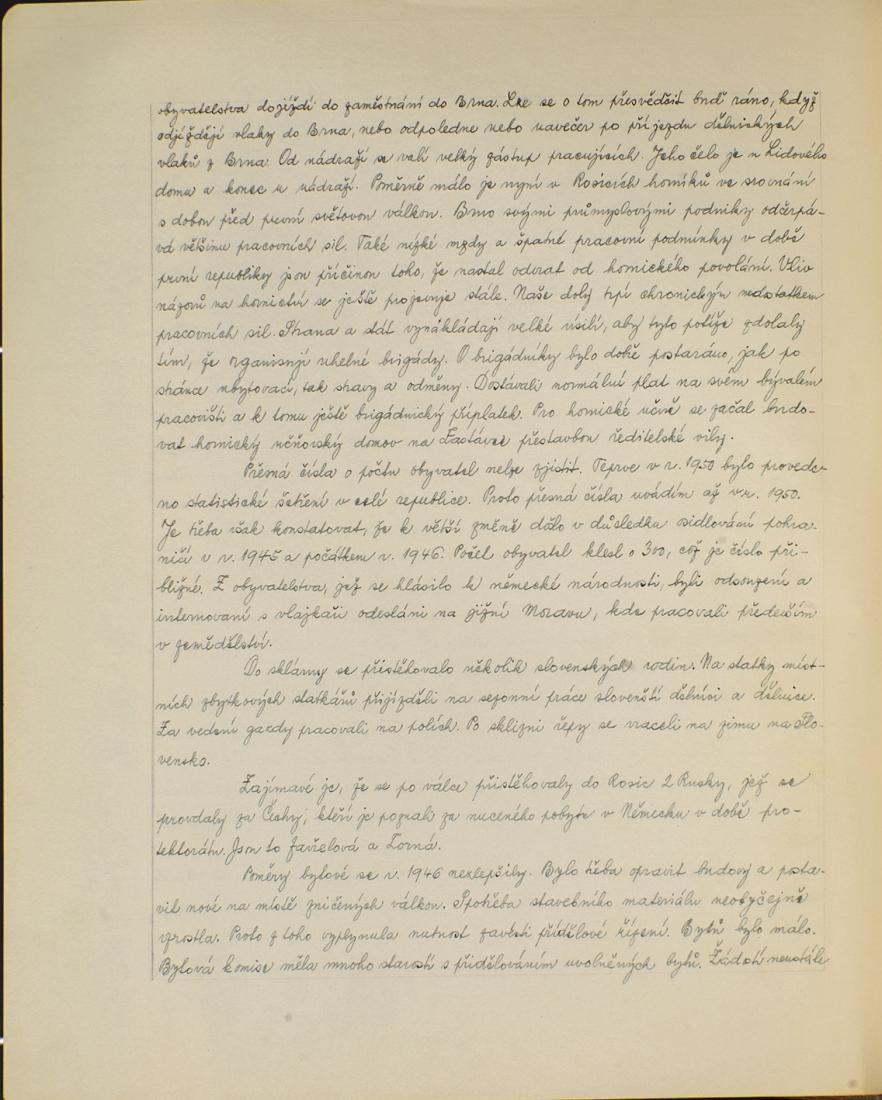 obyvatelstva dojíždí do zaměstnání do Brna. Lze se o tom přesvědčit buď ráno, když
odjíždějí vlaky do Brna, nebo odpoledne nebo navečer po příjezdu dělnických
vlaků z Brna. Od nádraží se valí velký zástup pracujících. Jeho čelo je u Lidového
domu a konec u nádraží. Poměrně málo je nyní v Rosicích horníků ve srovnání
s dobou před první světovou válkou. Brno svými průmyslovými podniky odčerpá-
vá většinu pracovních sil. Také nízké mzdy a špatné pracovní podmínky v době
první republiky jsou příčinou toho, že nastal odvrat od hornického povolání. Vliv
názorů na hornictví se ještě projevuje stále. Naše doly trpí chronickým nedostatkem
pracovních sil. Strana a stát vynakládají velké úsilí, aby tyto potíže zdolaly
tím, že organisují uhelné brigády. O brigádníky bylo dobře postaráno, jak po
stránce ubytovací, tak stravy a odměny. Dostávali normální plat na svém bývalém
pracovišti a k tomu ještě brigádnický příplatek. Pro hornické učně se začal budo-
vat hornický učňovský domov na Zastávce přestavbou ředitelské vily.
Přesná čísla o počtu obyvatel nelze zjistit. Teprve v r. 1950 bylo provede-
no statistické šetření v celé republice. Proto přesná čísla uvádím až v r. 1950.
Je třeba však konstatovat, že k větší změně dálo v důsledku sidlování pohra-
ničí v r. 1945 a počátkem r. 1946. Počet obyvatel klesl o 300, což je číslo při-
bližné. Z obyvatelstva, jež se hlásilo k německé národnosti, byli odsouzeni a
internovaní s vlajkaři odesláni na jižní Moravu, kde pracovali především
v zemědělství.
Do sklárny se přistěhovalo několik slovenských rodin. Na statky míst-
ních zbytkových statkářů přijížděli na sezonní práce slovenští dělníci a dělnice.
Za vedení gazdy pracovali na polích. Po sklizni řepy se vraceli na zimu na Slo-
vensko.
Zajímavé je, že se po válce přistěhovaly do Rosic 2 Rusky, jež se
provdaly za Čechy, kteří je poznali za nuceného pobytu v Německu v době pro-
tektorátu. Jsou to Javřelová a Zorná.
Poměry bytové se r. 1946 nezlepšily. Bylo třeba opravit budovy a posta-
vit nové na místě zničených válkou. Spotřeba stavebního materiálu neobyčejně
vzrostla. Proto z toho vyplynula nutnost zavésti přídělové řízení. Bytů bylo málo.
Bytová komise měla mnoho starostí s přidělováním uvolněných bytů. Žádosti neustále